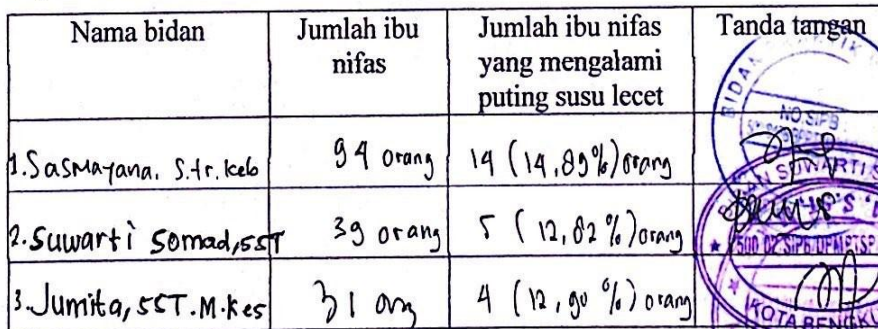 Nama bidan
Jumlah ibu nifas
Jumlah ibu nifas yang mengalami puting susu lecet
Tanda tangan
1. Sasmayana. S.tr.keb
94 orang
14 (14,89%) orang
2. Suwarti Somad, SST
39 orang
5 (12,82 %) orang
3. Jumita, SST. M.Kes
31 org
4 (12,90 %) orang
BIDAN
NO.SIPB
SUWARTI S
KOTA BENGKU